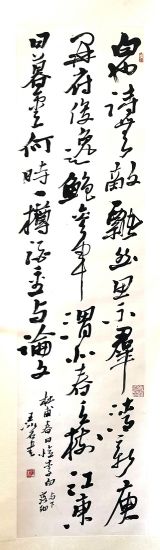 白也詩无敵飄然思不羣清新庾
開府俊逸鮑参軍渭北春天樹江東
日暮雲何時一樽酒重与論文
杜甫春日憶李白
与下落細